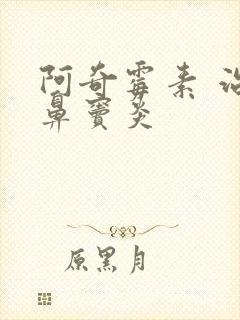 阿奇霉素 治
鼻窦炎
原黑月